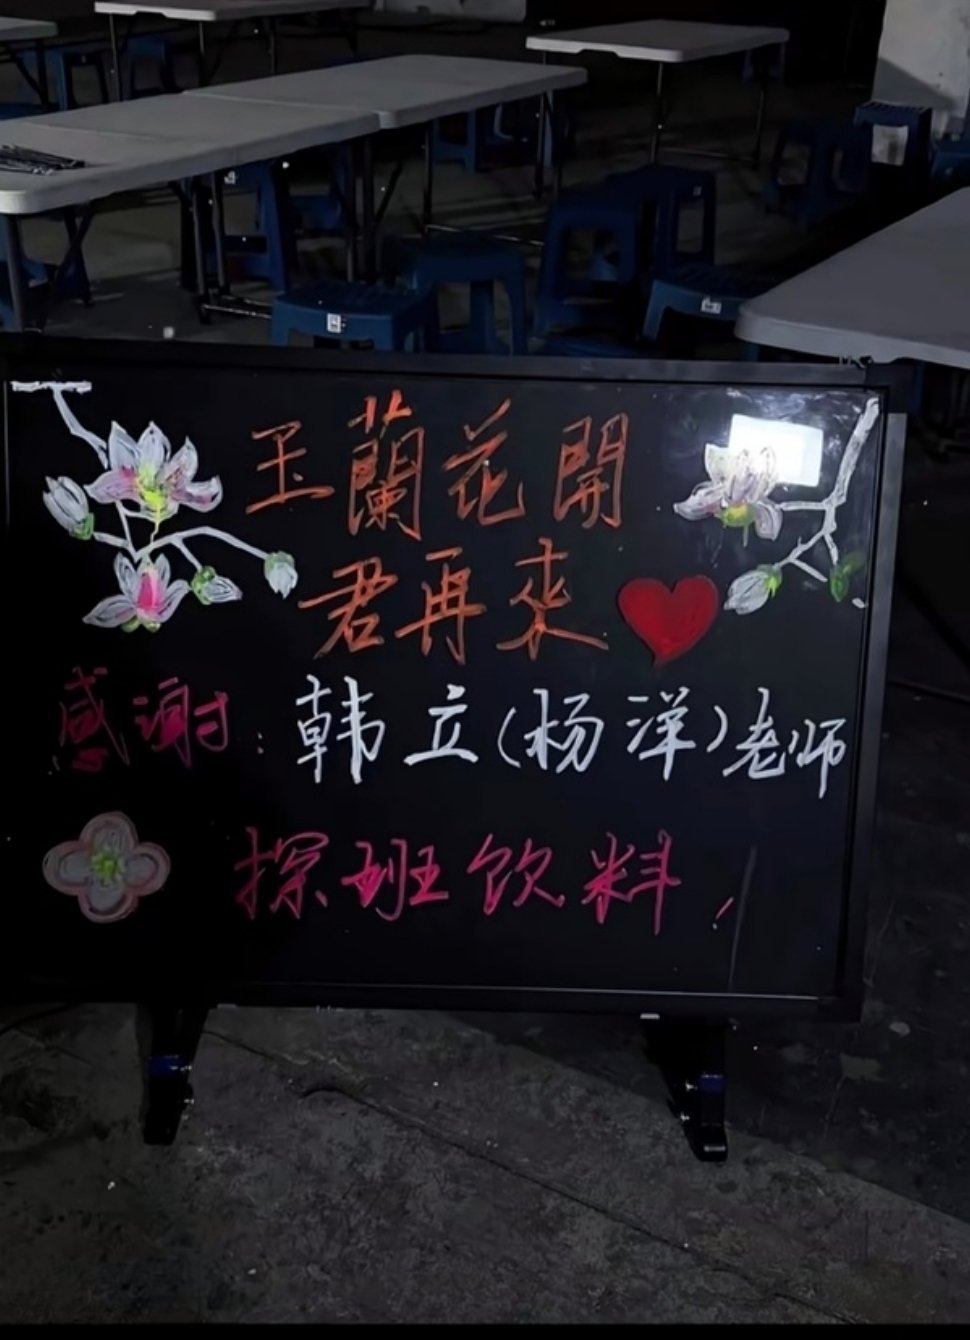 玉蘭花開
君再來
感谢：韩立(杨洋)老师
探班饮料！